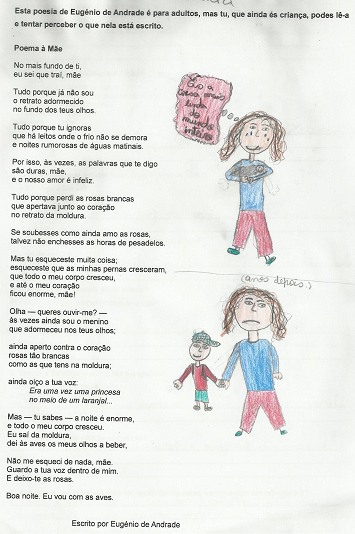 Esta poesia de Eugénio de Andrade é para adultos, mas tu, que ainda és criança, podes lê-a
e tentar perceber o que nela está escrito.
Poema à Mãe
No mais fundo de ti,
eu sei que traí, mãe
Tudo porque já não sou
o retrato adormecido
no fundo dos teus olhos.
Tudo porque tu ignoras
que há leitos onde o frio não se demora
e noites rumorosas de águas matinais.
Por isso, às vezes, as palavras que te digo
são duras, mãe,
e o nosso amor é infeliz.
Tudo porque perdi as rosas brancas
que apertava junto ao coração
no retrato da moldura.
Se soubesses como ainda amo as rosas,
talvez não enchesses as horas de pesadelos.
Mas tu esqueceste muita coisa;
esqueceste que as minhas pernas cresceram,
que todo o meu corpo cresceu,
e até o meu coração
ficou enorme, mãe!
Olha — queres ouvir-me? —
às vezes ainda sou o menino
que adormeceu nos teus olhos;
ainda aperto contra o coração
rosas tão brancas
como as que tens na moldura;
ainda oiço a tua voz:
Era uma vez uma princesa
no meio de um laranjal...
Mas — tu sabes — a noite é enorme,
e todo o meu corpo cresceu.
Eu saí da moldura,
dei às aves os meus olhos a beber,
Não me esqueci de nada, mãe.
Guardo a tua voz dentro de mim.
E deixo-te as rosas.
Boa noite. Eu vou com as aves.
Escrito por Eugénio de Andrade
és a
coisa mais
linda
do
mundo
inteiro
(anos depois.)